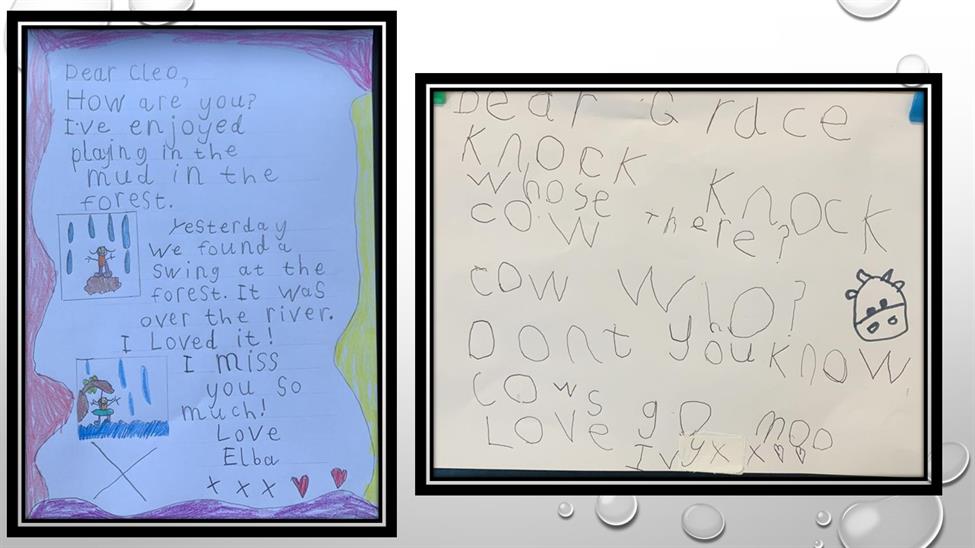 Dear Cleo,
How are you?
I've enjoyed
playing in the
mud in the
forest.
Yesterday
we found a
swing at the
forest. It was
over the river.
I Loved it!
I miss
you so
much!
Love
Elba
x x x
Dear Grace
Knock Knock
whose there?
cow
cow who?
Dont you know
cows go moo
Love
Ivy x x